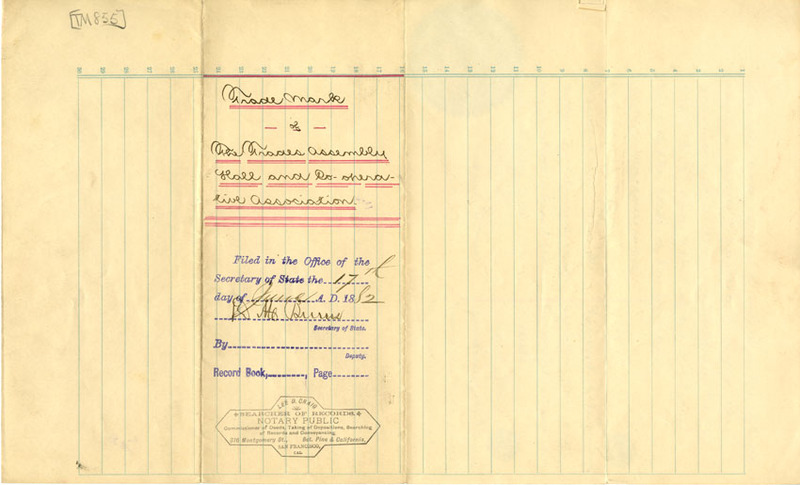 [TM855]
30 29 28 27 26 25 24 23 22 21 20 19 18 17 16 15 14 13 12 11 10 9 8 7 6 5 4 3 2 1
Trade Mark
— of —
The Trades Assembly
Hall and Co-opera-
tive Association.
Filed in the Office of the
Secretary of State the 17th
day of June A. D. 1882
Secretary of State.
By
Deputy.
Record Book, , Page
LEE D. CRAIG
SEARCHER OF RECORDS,
NOTARY PUBLIC
Commissioner of Deeds, Taking of Depositions, Searching
of Records and Conveyancing,
316 Montgomery St., Bet. Pine & California,
SAN FRANCISCO,
CAL.